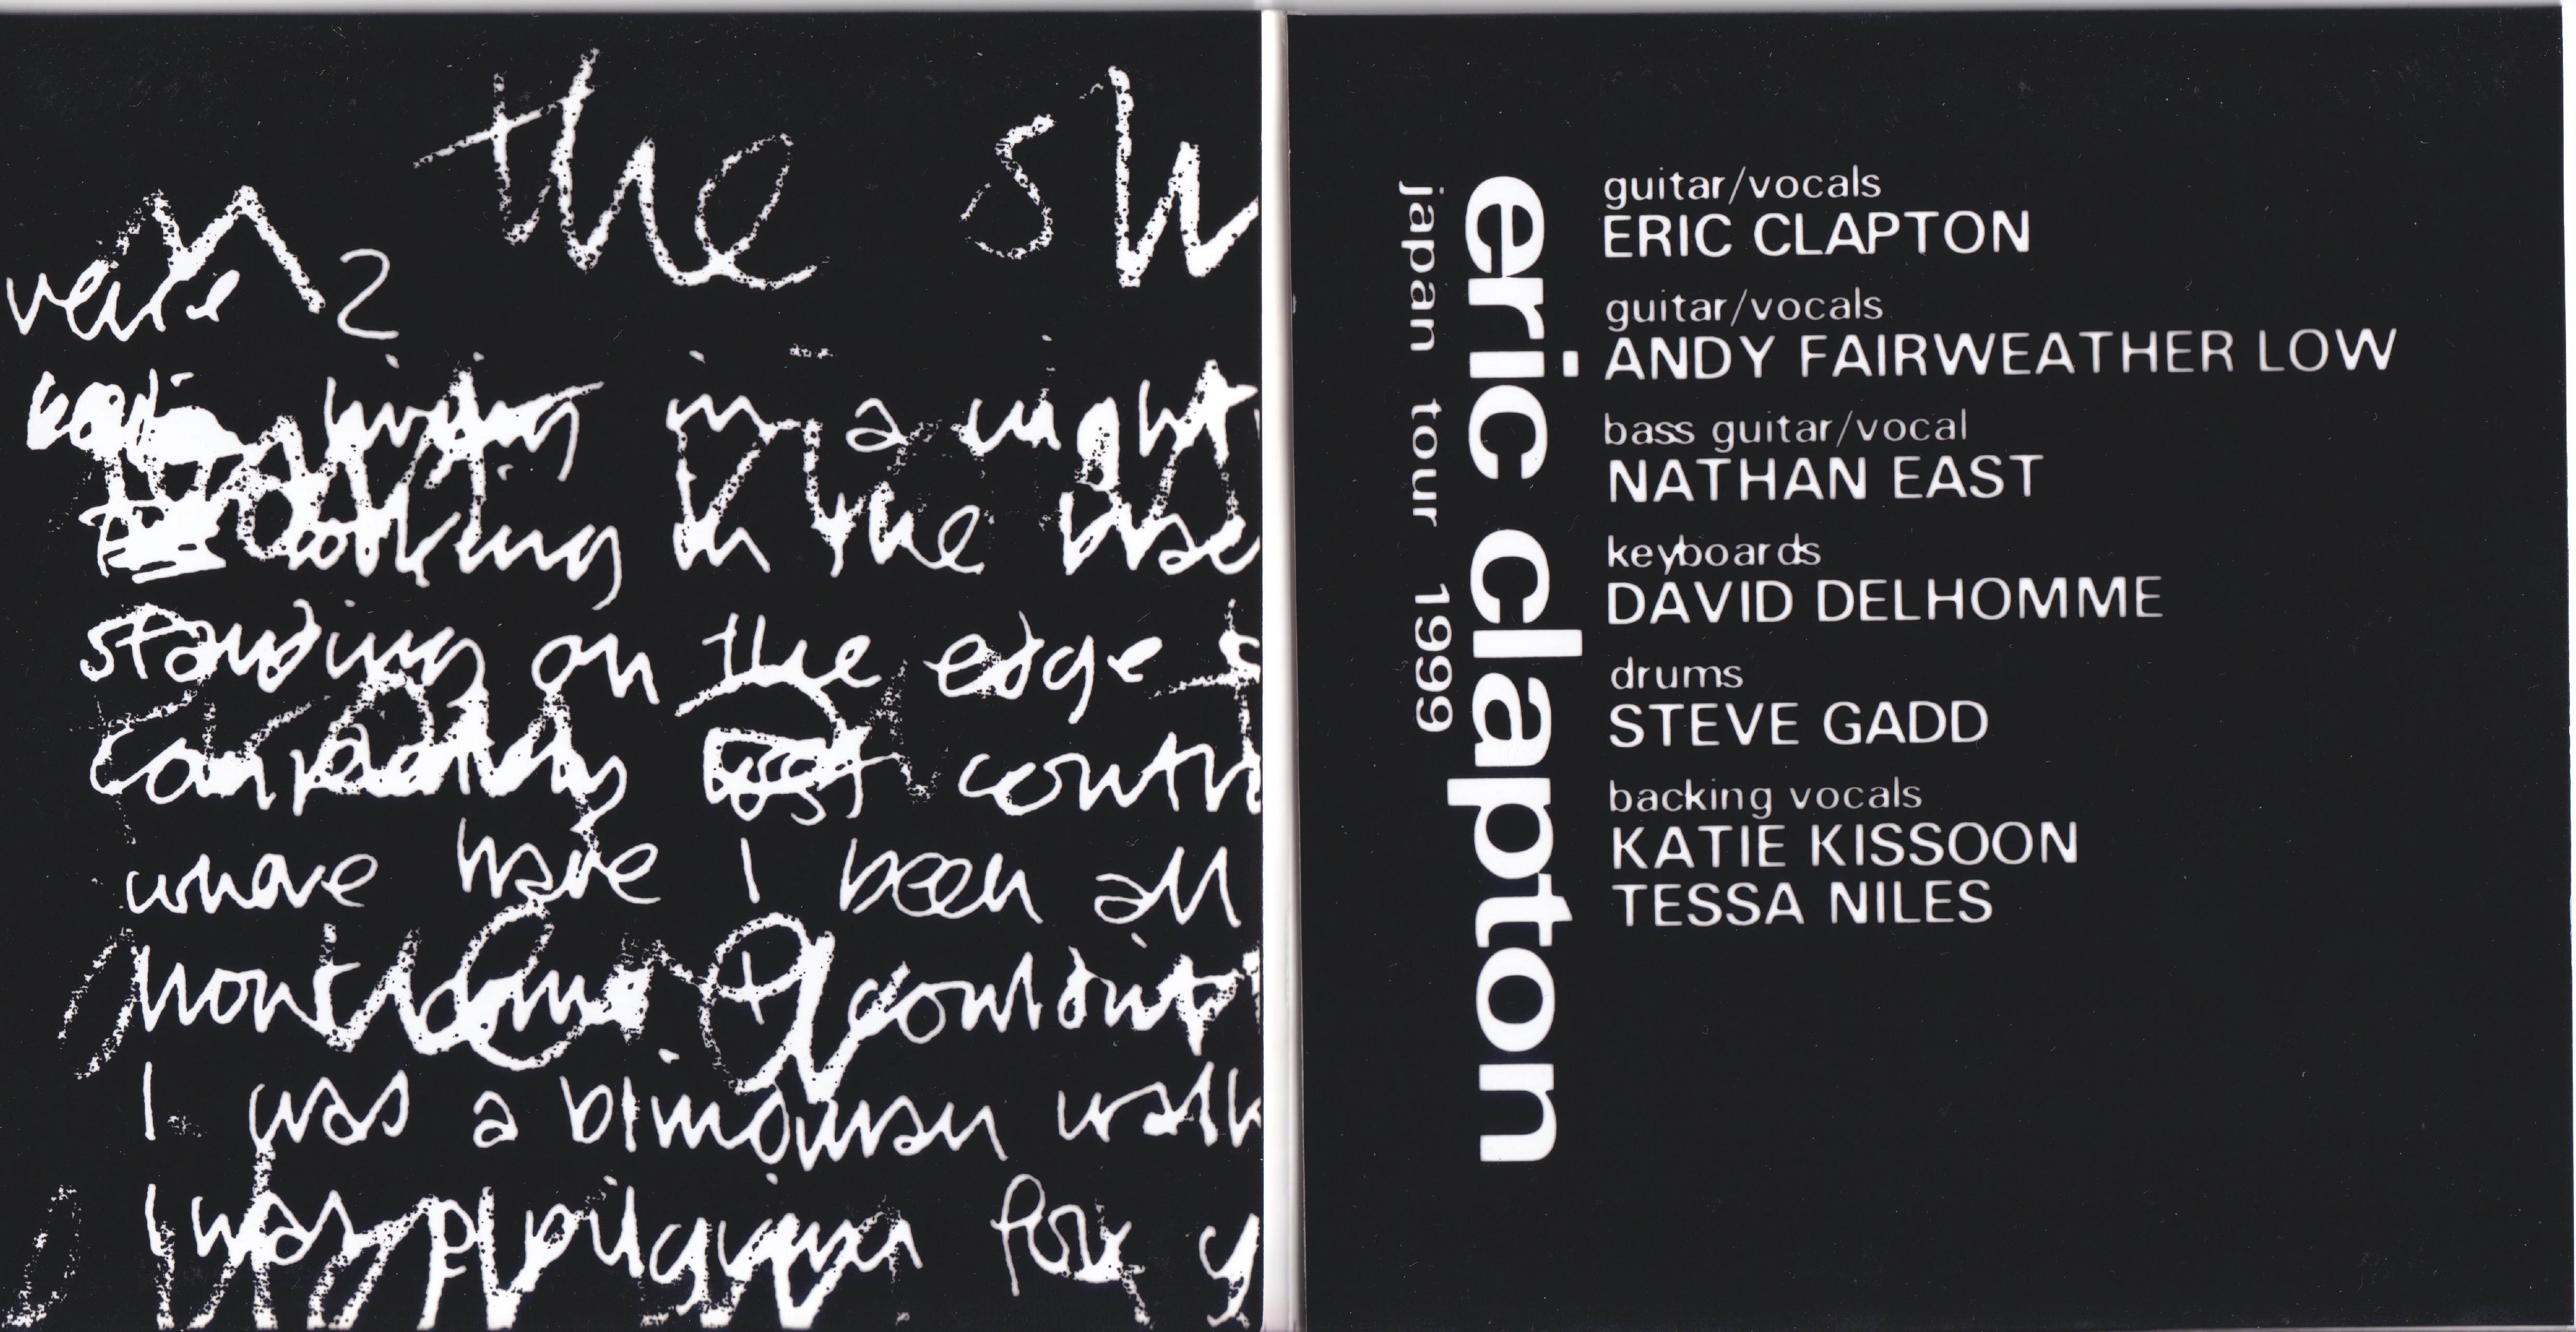 the sh
verse 2
living in a night
looking in the
standing on the edge
completely lost contr
where have I been all
I was a blindman walk
I was pilgrim for y
eric clapton
japan tour 1999
guitar/vocals
ERIC CLAPTON
guitar/vocals
ANDY FAIRWEATHER LOW
bass guitar/vocal
NATHAN EAST
keyboards
DAVID DELHOMME
drums
STEVE GADD
backing vocals
KATIE KISSOON
TESSA NILES